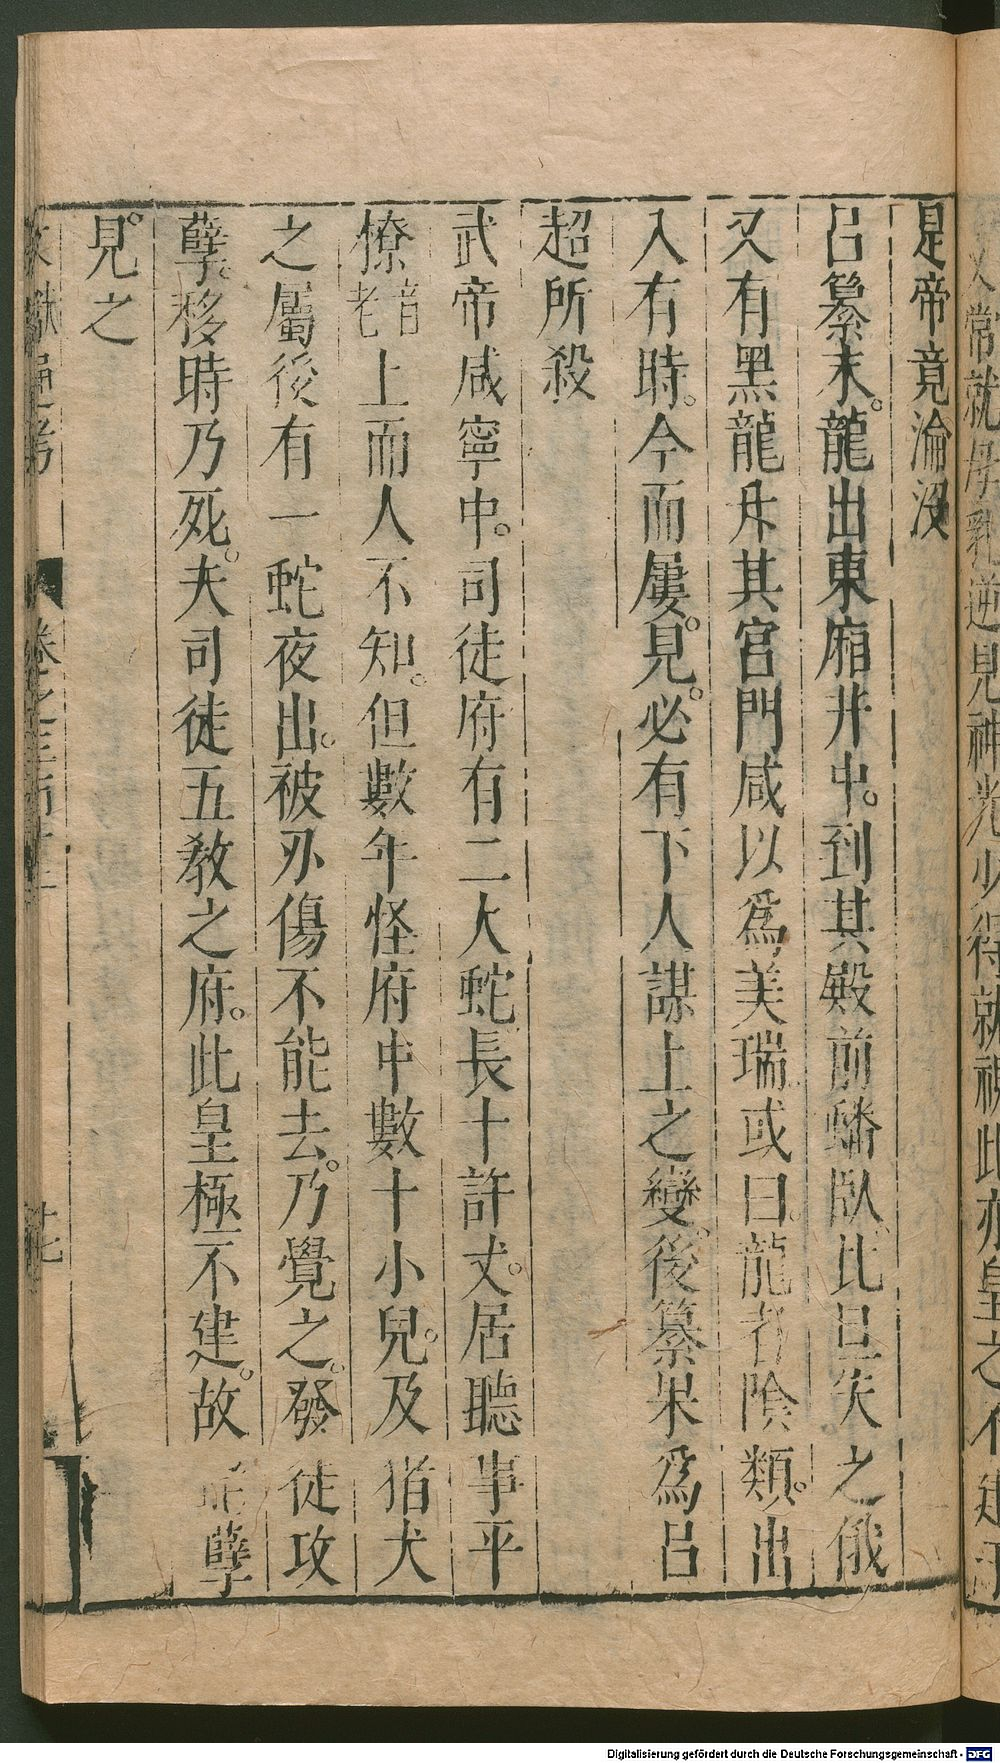 是帝竟淪沒
呂纂末龍出東廂井中到其殿前蟠臥比旦失之俄
又有黑龍升其宮門咸以爲美瑞或曰龍者陰類出
入有時今而屢見必有下人謀上之變後纂果爲呂
超所殺
武帝咸寧中司徒府有二大蛇長十許丈居聽事平
橑音老上而人不知但數年怪府中數十小兒及猪犬
之屬後有一蛇夜出被刃傷不能去乃覺之發徒攻
孽移時乃死夫司徒五教之府此皇極不建故蛇孽
見之
人常就母乳逆見神光少得就視此亦皇之不建于
Digitalisierung gefördert durch die Deutsche Forschungsgemeinschaft - DFG